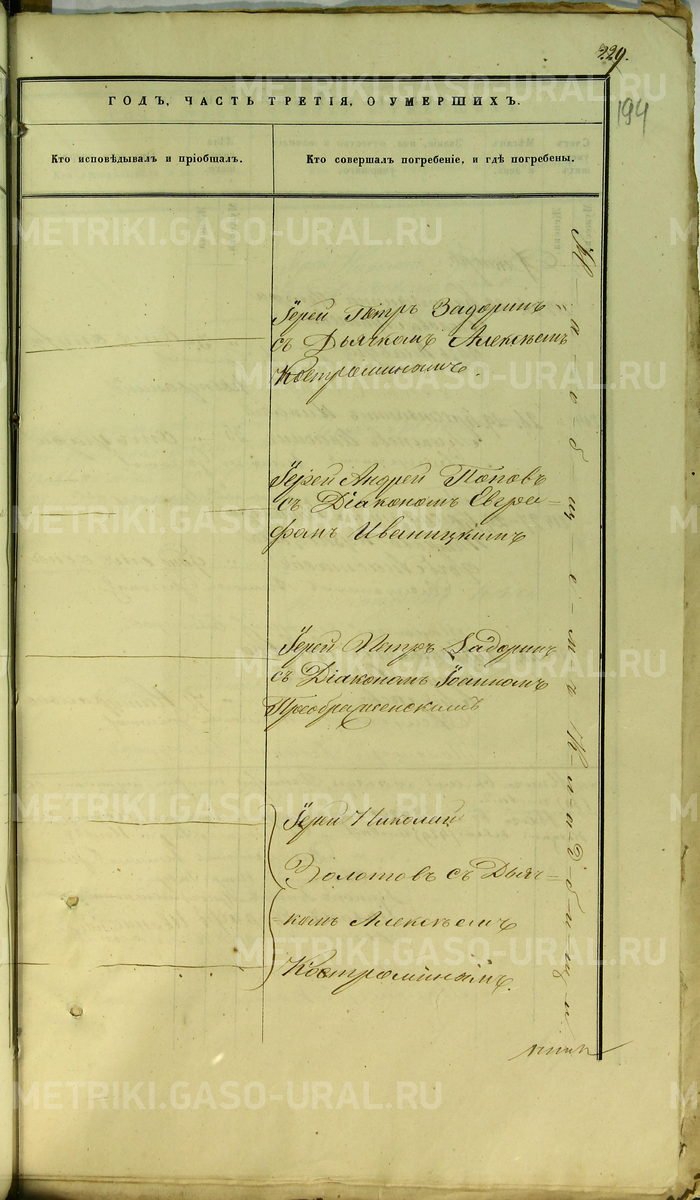 229.
194
ГОДЪ, ЧАСТЬ ТРЕТІЯ, О УМЕРШИХЪ.
Кто исповѣдывалъ и пріобщалъ.
Кто совершалъ погребеніе, и гдѣ погребены.
METRIKI.GASO-URAL.RU
Іерей Петръ Задоринъ
съ Дьячкомъ Алексѣемъ
Костроминымъ.
Іерей Андрей Поповъ
съ Діакономъ Евгра-
фомъ Иваницкимъ
Іерей Петръ Задоринъ
съ Діакономъ Іоанномъ
Преображенскимъ
Іерей Николай
Золотовъ съ Дьяч-
комъ Алексѣемъ
Костроминымъ.
На общемъ кладбищѣ